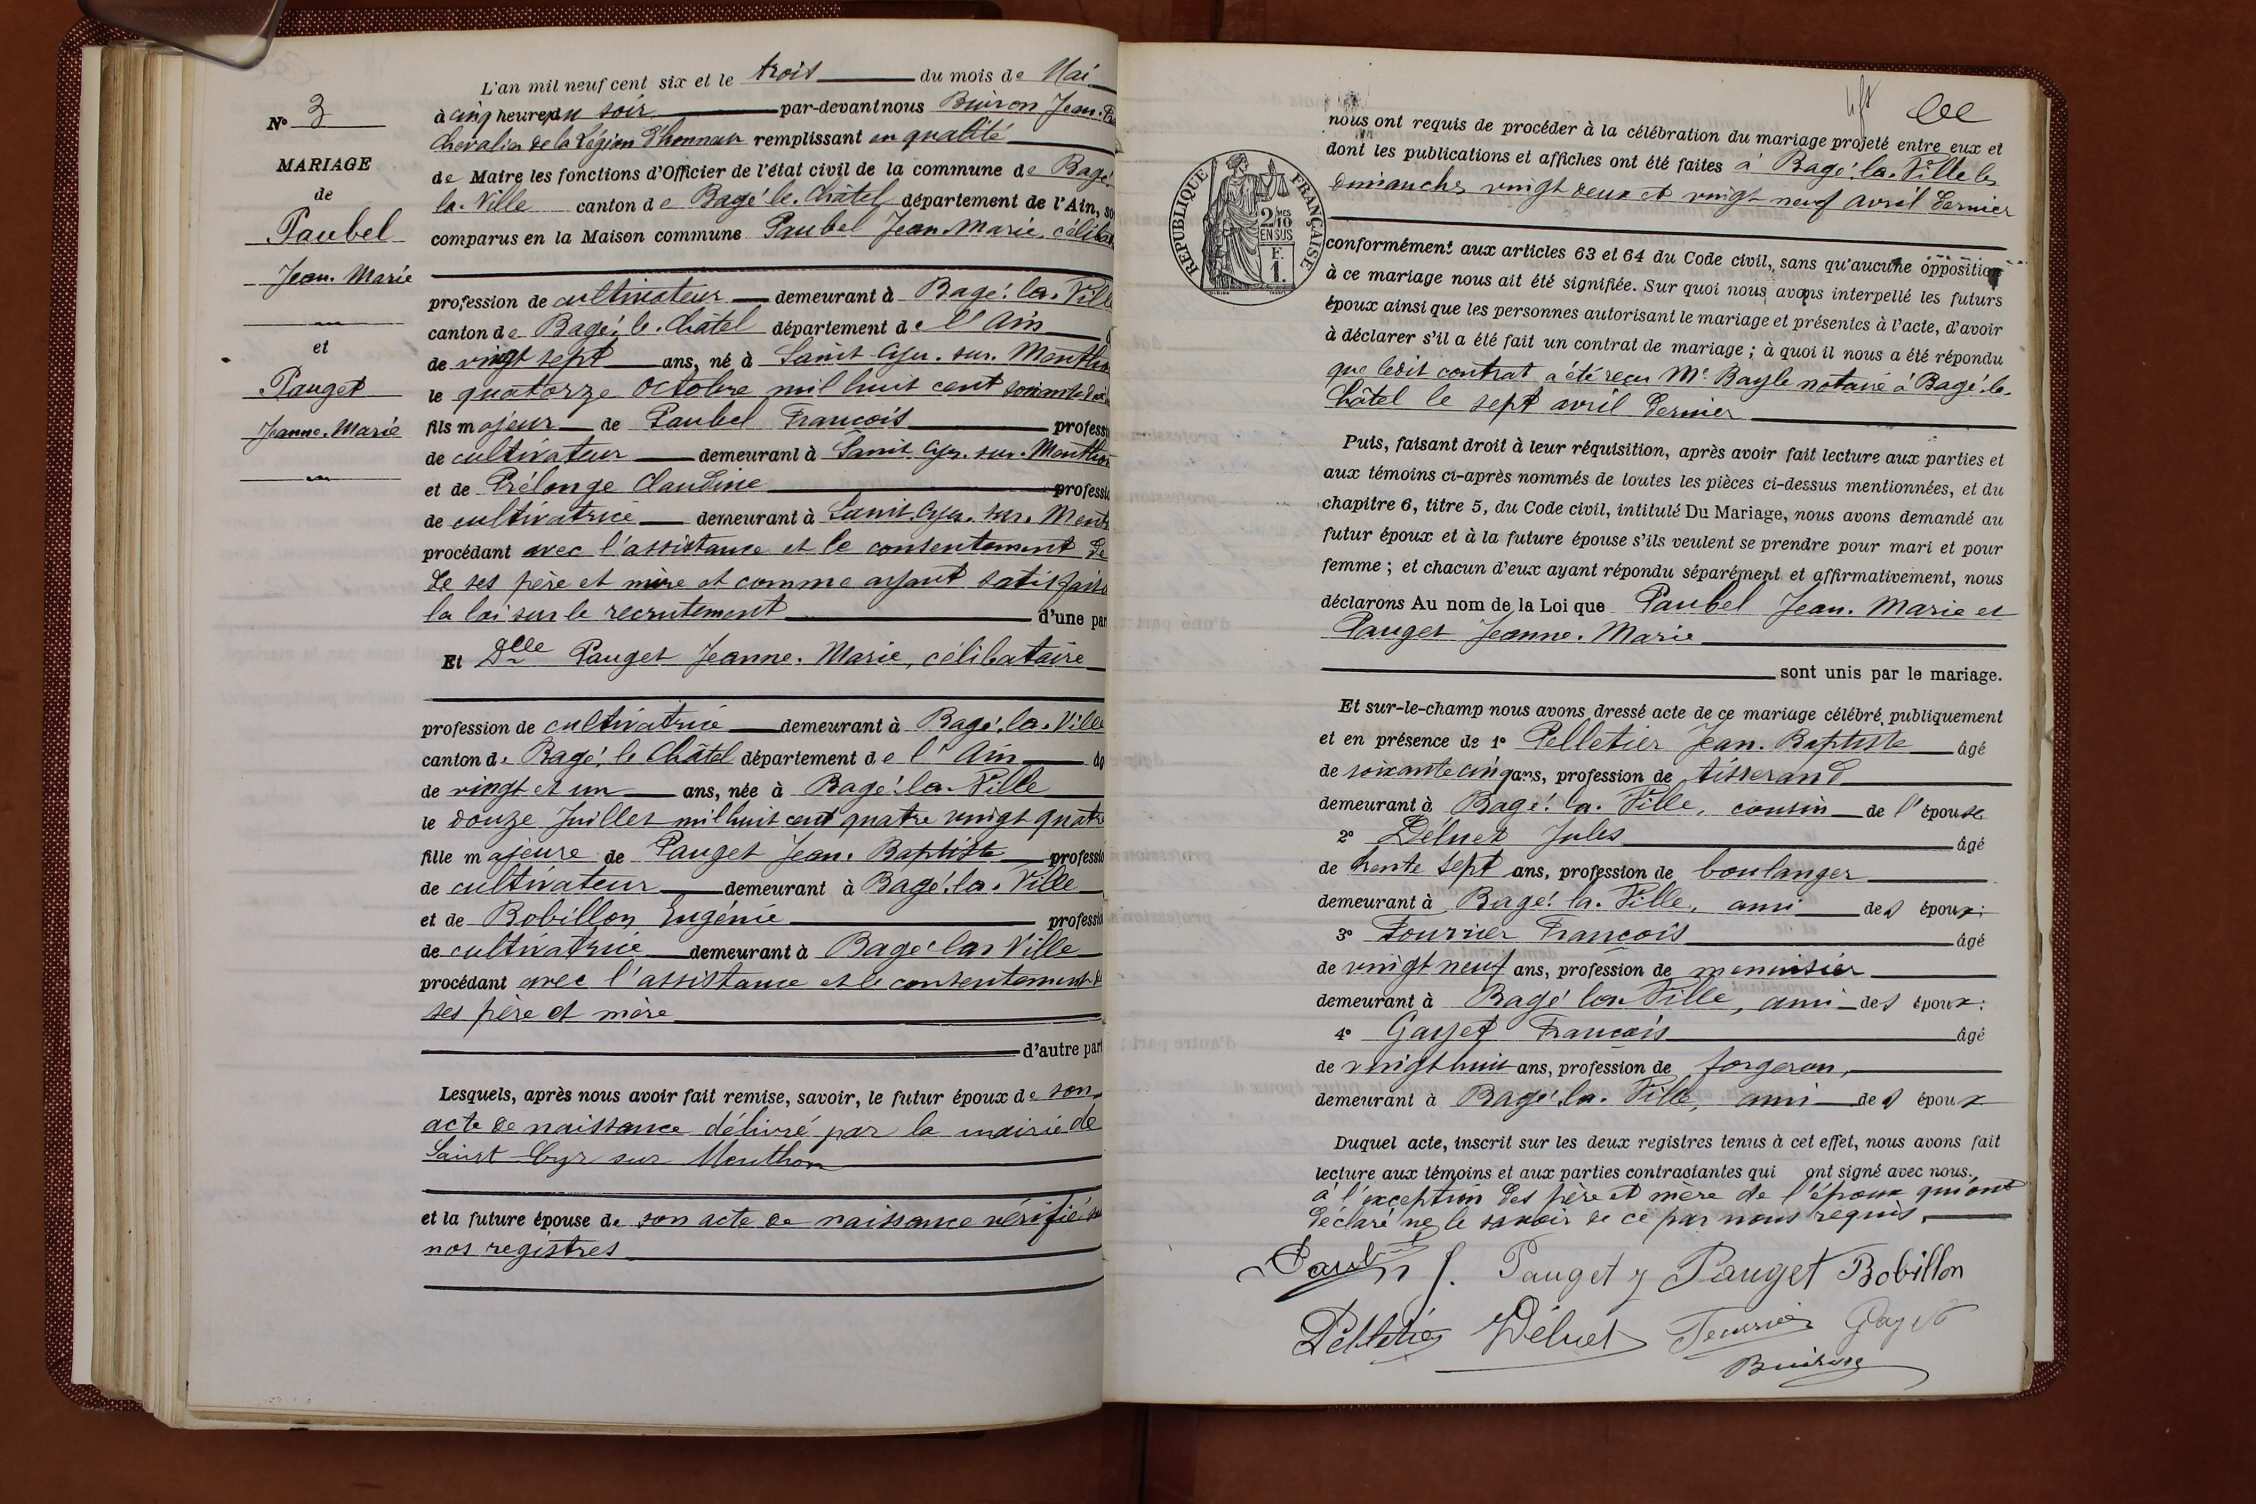 L'an mil neuf cent six et le trois du mois de Mai
à cinq heures du soir par-devant nous Buiron Jean
Chevalier de la Légion d'honneur remplissant en qualité
de Maire les fonctions d'Officier de l'état civil de la commune de Bagé.
la. Ville canton de Bagé. le. Châtel département de l'Ain,
comparus en la Maison commune Paubel Jean Marie
profession de cultivateur demeurant à Bagé. la. Ville
canton de Bagé. le. Châtel département de l'Ain
de vingt sept ans, né à Saint Cyr. sur. Menthon
le quatorze Octobre mil huit cent
fils majeur de Paubel François
de cultivateur demeurant à Saint Cyr. sur. Menthon
et de Prélonge Claudine
de cultivatrice demeurant à Saint Cyr. sur.
procédant avec l'assistance et le consentement de
de ses père et mère et comme ayant
la loi sur le recrutement d'une par
Et Dlle Pauget Jeanne. Marie, célibataire
profession de cultivatrice demeurant à Bagé. la. Ville
canton de Bagé. le Châtel département de l'Ain
de vingt et un ans, née à Bagé. la. Ville
le douze Juillet mil huit cent quatre vingt quatre
fille majeure de Pauget Jean. Baptiste
de cultivateur demeurant à Bagé. la. Ville
et de Bobillon Eugénie
de cultivatrice demeurant à Bagé la Ville
procédant avec l'assistance et le consentement de
ses père et mère
d'autre part
Lesquels, après nous avoir fait remise, savoir, le futur époux de son
acte de naissance délivré par la mairie de
Saint Cyr sur Menthon
et la future épouse de son acte de naissance vérifié
nos registres
N° 3
MARIAGE
de
Paubel
Jean. Marie
et
Pauget
Jeanne. Marie
RÉPUBLIQUE FRANÇAISE
2/10 MES
EN SUS
F.
1.
nous ont requis de procéder à la célébration du mariage projeté entre eux et
dont les publications et affiches ont été faites à Bagé. la. Ville les
dimanches vingt deux et vingt-neuf avril dernier
conformément aux articles 63 et 64 du Code civil, sans qu'aucune opposition
à ce mariage nous ait été signifiée. Sur quoi nous avons interpellé les futurs
époux ainsi que les personnes autorisant le mariage et présentes à l'acte, d'avoir
à déclarer s'il a été fait un contrat de mariage ; à quoi il nous a été répondu
que ledit contrat a été reçu Me Bayle notaire à Bagé. le.
Châtel le sept avril dernier
Puis, faisant droit à leur réquisition, après avoir fait lecture aux parties et
aux témoins ci-après nommés de toutes les pièces ci-dessus mentionnées, et du
chapitre 6, titre 5, du Code civil, intitulé Du Mariage, nous avons demandé au
futur époux et à la future épouse s'ils veulent se prendre pour mari et pour
femme ; et chacun d'eux ayant répondu séparément et affirmativement, nous
déclarons Au nom de la Loi que Paubel Jean. Marie et
Pauget Jeanne. Marie
sont unis par le mariage.
Et sur-le-champ nous avons dressé acte de ce mariage célébré publiquement
et en présence de 1° Pelletier Jean. Baptiste âgé
de soixante cinq ans, profession de tisserand
demeurant à Bagé. la. Ville, cousin de l'épouse
2° Déluet Jules âgé
de trente sept ans, profession de boulanger
demeurant à Bagé. la. Ville, ami des époux ;
3° Fourrier François âgé
de vingt neuf ans, profession de menuisier
demeurant à Bagé la Ville, ami des époux ;
4° Gayet François âgé
de vingt huit ans, profession de forgeron,
demeurant à Bagé. la. Ville, ami des époux
Duquel acte, inscrit sur les deux registres tenus à cet effet, nous avons fait
lecture aux témoins et aux parties contractantes qui ont signé avec nous,
à l'exception des père et mère de l'époux qui ont
déclaré ne le savoir de ce par nous requis.
J. Pauget Pauget Bobillon
Pelletier Déluet Fourrier Gayet
Buiron